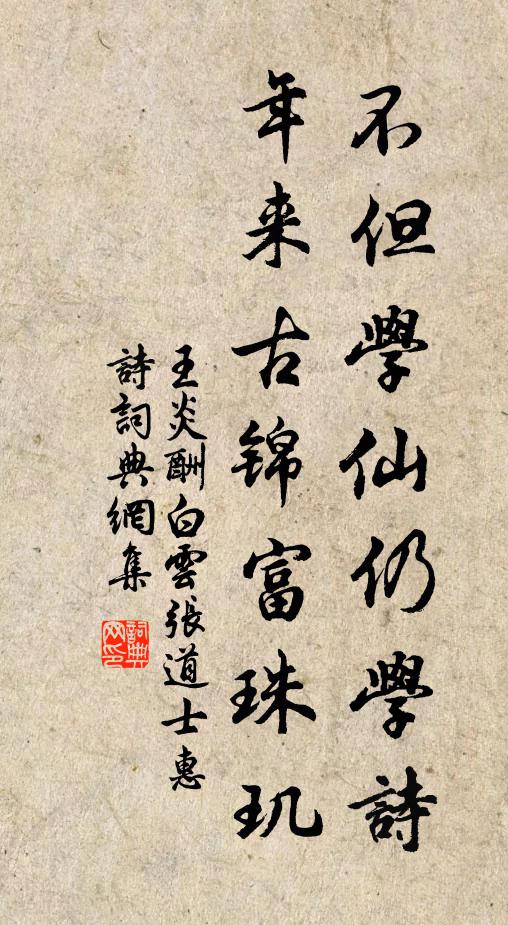 不但學仙仍學詩
年来古锦富珠玑
王炎酬白雲張道士惠
詩詞典網集
詞典网印